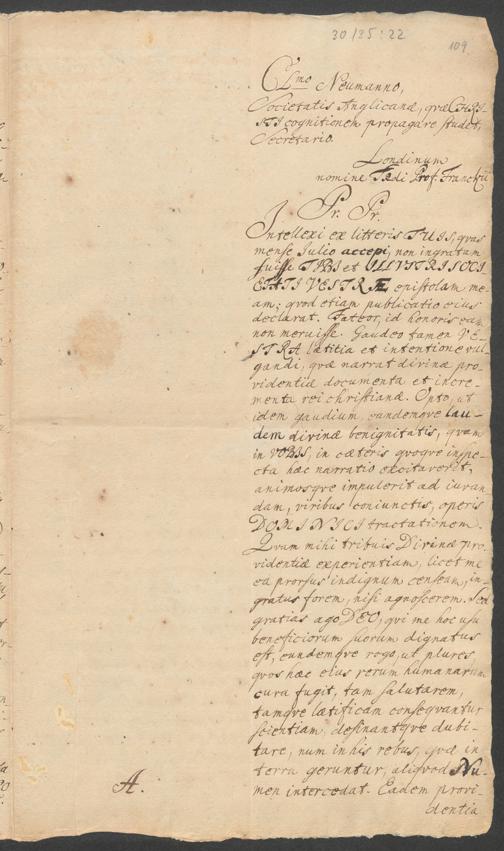 30/35:22
109
Cl.mo Neumanno,
Societatis Anglicanæ, quæ CHRI-
STI cognitionem propagare studet,
Secretario.
Londinum
nomine Prof. Franckii
Pr. Pr.
Intellexi ex litteris TUIS, quas
mense Julio accepi, non ingratam
fuisse TIBI et ILLVSTRI SOCI
ETATI VESTRÆ epistolam me-
am; quod etiam publicatio eius
declarat. Fateor, id honoris eam
non meruisse. Gaudeo tamen VE-
STRA lætitia et intentione vul
gandi, quæ narrat divinæ pro
videntiæ documenta et incre-
menta rei christianæ. Opto, ut
idem gaudium, eandemque lau-
dem divinæ benignitatis, quam
in VOBIS, in cæteris quoque inspe-
cta hæc narratio excitaverit,
animosque impulerit ad iuvan
dam, viribus coniunctis, operis
DOMINICI tractationem.
Quam mihi tribuis Divinæ pro-
videntiæ experientiam, licet me
ea prorsus indignum censeam, in-
gratus forem, nisi agnoscerem. Sed
gratias ago DEO, qui me hoc usu
beneficiorum suorum dignatus
est, eundemque rogo, ut plures
quos hæc eius rerum humanarum
cura fugit, tam salutarem,
tamque lætificam consequantur
scientiam, desinantque dubi-
tare, num in his rebus, quæ in
terra geruntur, aliquod Nu-
men intercedat. Eadem provi-
dentia
A.